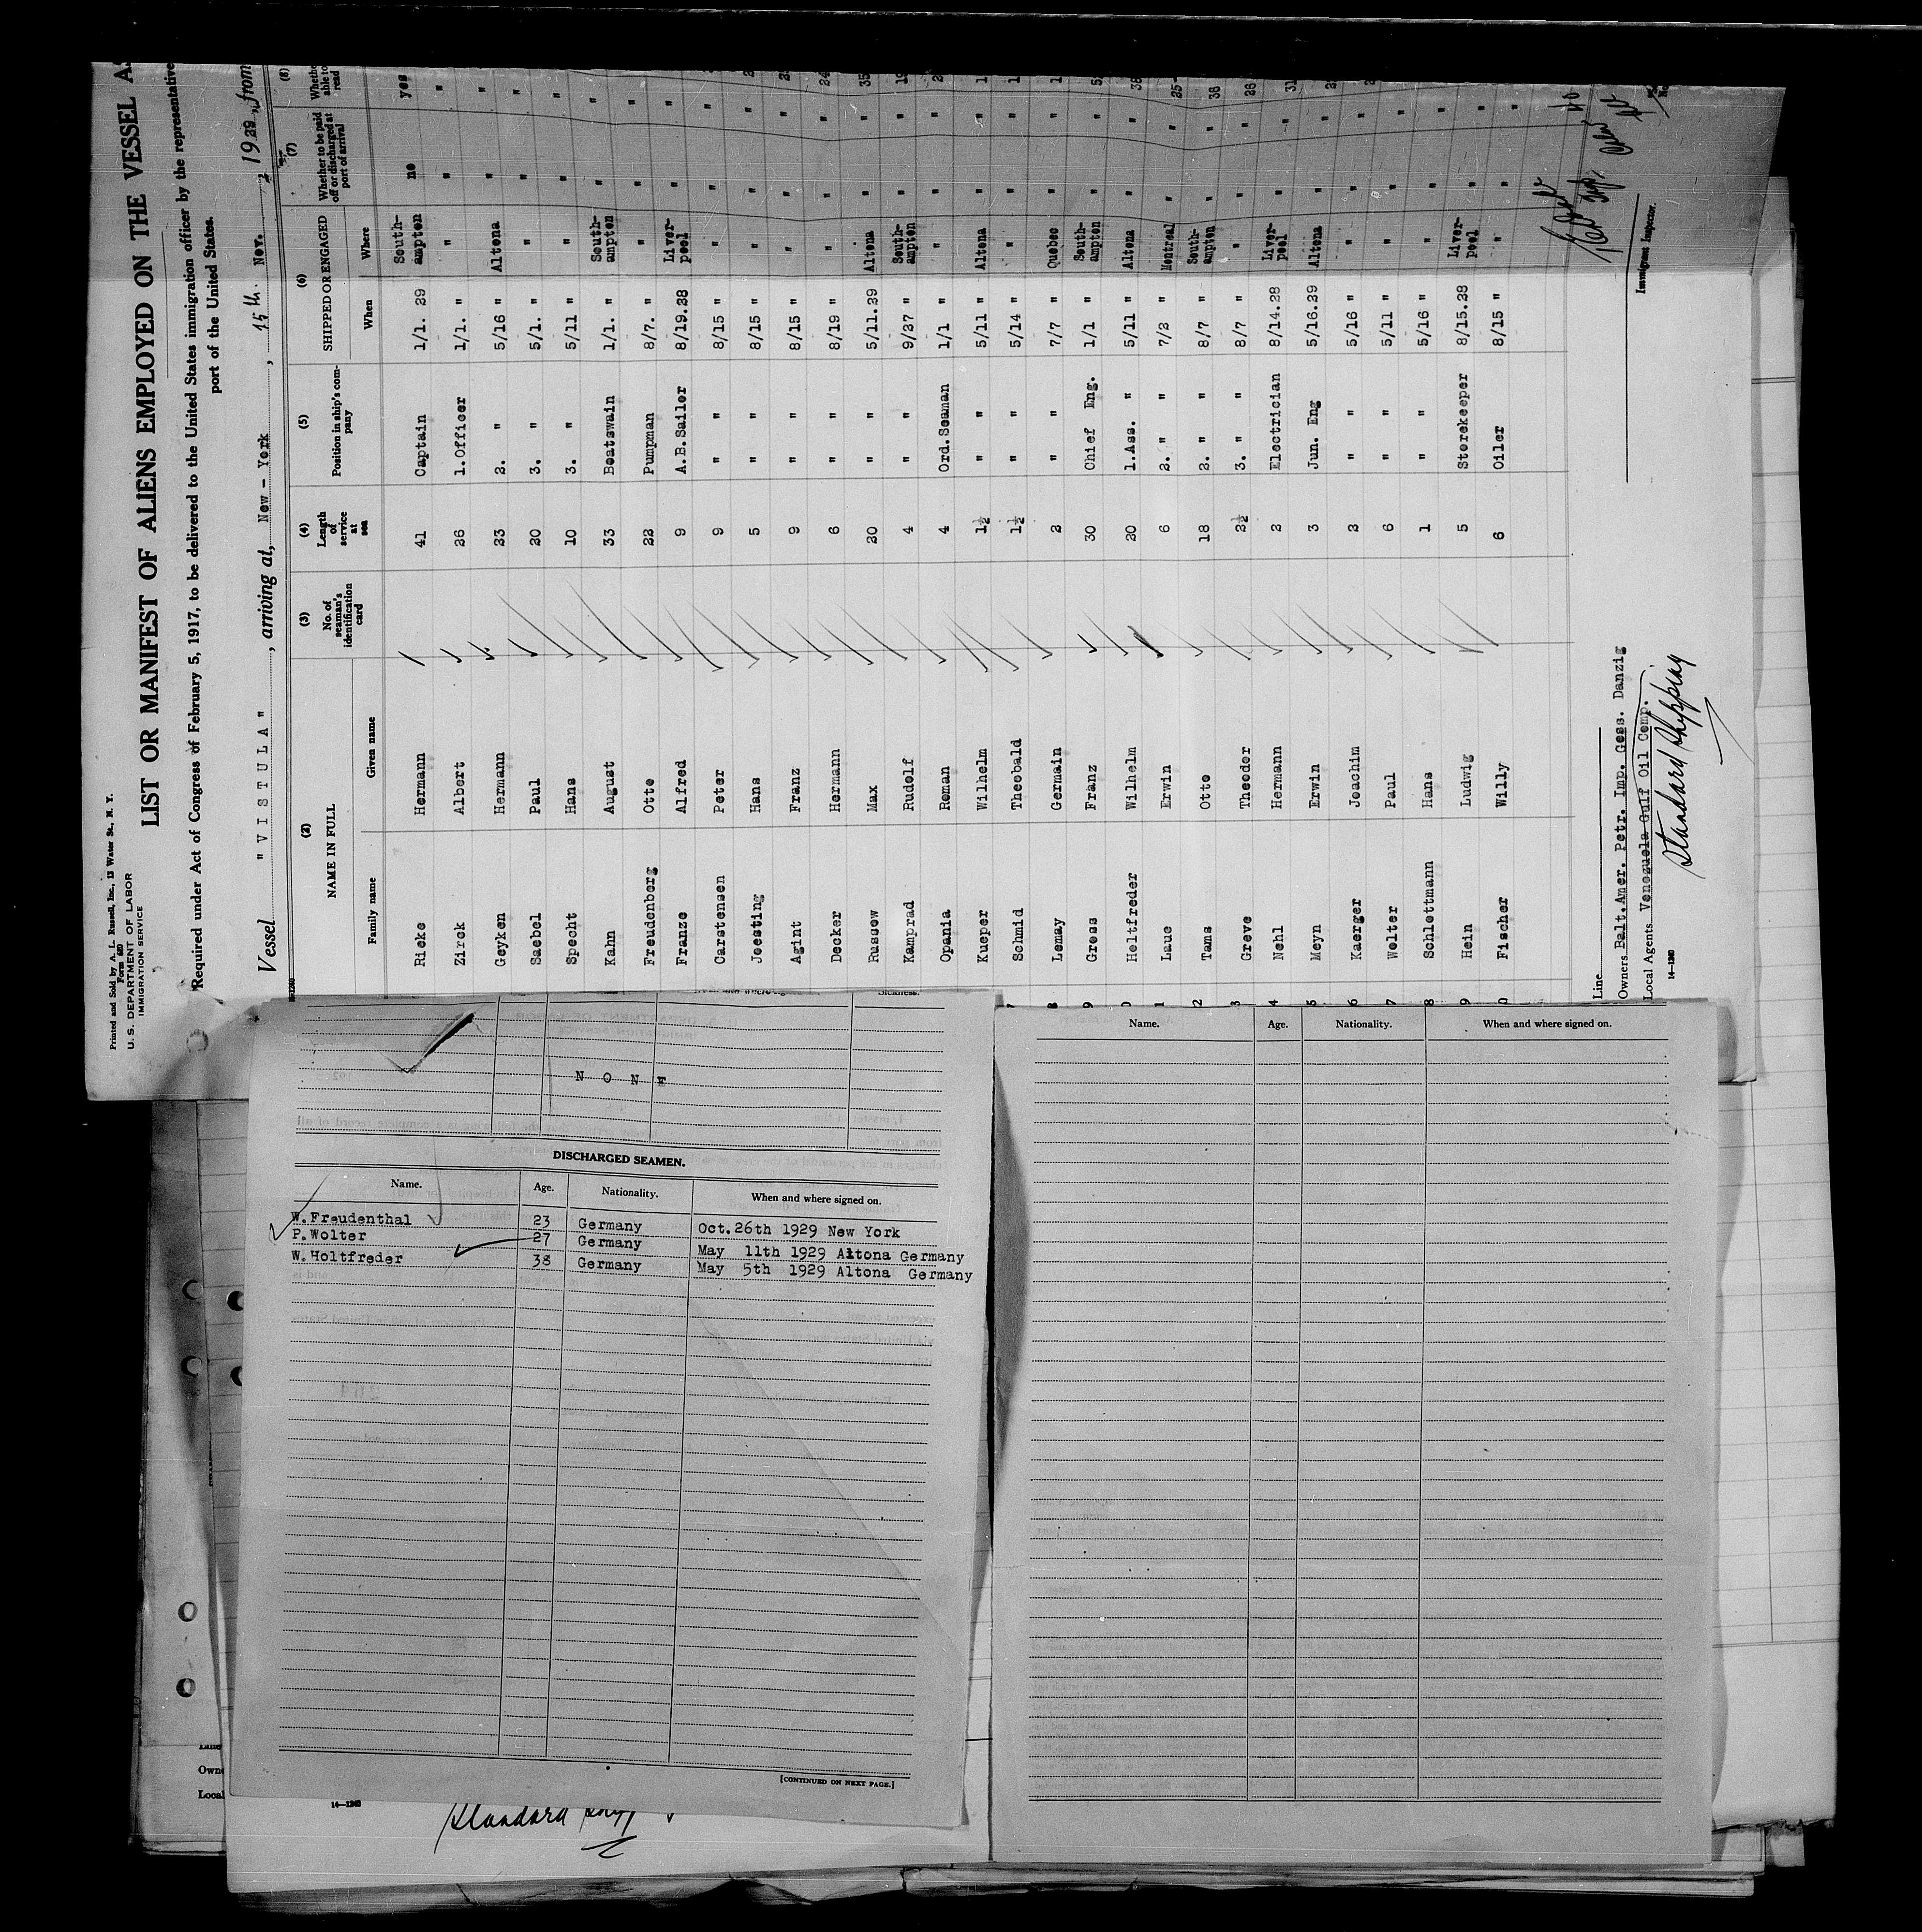 Printed and Sold by A. L. Russell, Inc., 13 Water St., N. Y.
Form 680
U. S. DEPARTMENT OF LABOR
IMMIGRATION SERVICE
LIST OR MANIFEST OF ALIENS EMPLOYED ON THE VESSEL AS
Required under Act of Congress of February 5, 1917, to be delivered to the United States immigration officer by the representative
port of the United States.
Vessel "VISTULA", arriving at, New-York, 15th. Nov., 1929, from
(2) (3) (4) (5) (6) (7) (8)
NAME IN FULL No. of seaman's identification card Length of service at sea Position in ship's company SHIPPED OR ENGAGED Whether to be paid off or discharged at port of arrival Whether able to read
Family name Given name When Where
Rieke Hermann 41 Captain 1/1. 29 South-ampton no yes
Zirck Albert 26 1.Officer 1/1. " " " "
Geyken Hermann 23 2. " 5/16 " Altona " "
Saebel Paul 20 3. " 5/1. " " " "
Specht Hans 10 3. " 5/11 " " " "
Kahn August 33 Boatswain 1/1. " South-ampton " "
Freudenberg Otto 22 Pumpman 8/7. " " " "
Franze Alfred 9 A.B.Sailor 8/19.28 Liver-pool " "
Carstensen Peter 9 " " 8/15 " " " "
Joesting Hans 5 " " 8/15 " " " "
Agint Franz 9 " " 8/15 " " " "
Decker Hermann 6 " " 8/19 " " " " 24
Russow Max 20 " " 5/11.29 Altona " " 35
Kamprad Rudolf 4 " " 9/27 " South-ampton " "
Opania Roman 4 Ord.Seaman 1/1 " " " "
Kueper Wilhelm 1½ " " 5/11 " Altona " "
Schmid Theobald 1½ " " 5/14 " " " "
8 Lemay Germain 2 " " 7/7 " Quebec " "
9 Gross Franz 30 Chief Eng. 1/1 " South-ampton " "
0 Holtfreder Wilhelm 20 1.Ass. " 5/11 " Altona " " 38
1 Laue Erwin 6 2. " " 7/2 " Montreal " " 25
2 Tams Otto 18 2. " " 8/7 " South-ampton " " 38
3 Greve Theodor 2½ 3. " " 8/7 " " " " 28
4 Nehl Hermann 2 Electrician 8/14.28 Liver-pool " "
5 Meyn Erwin 3 Jun. Eng 5/16.29 Altona " "
6 Kaerger Joachim 2 " " 5/16 " " " "
7 Wolter Paul 6 " " 5/11 " " " "
8 Schlottmann Hans 1 " " 5/16 " " " "
9 Hein Ludwig 5 Storekeeper 8/15.28 Liver-pool " "
0 Fischer Willy 6 Oiler 8/15 " " " "
Line
Owners Balt.Amer. Petr. Imp. Gess. Danzig
Local Agents Venezuela Gulf Oil Comp.
Standard Shipping
Immigrant Inspector.
14—1240
Sickness.
NONE
DISCHARGED SEAMEN.
Name. Age. Nationality. When and where signed on.
W.Freudenthal 23 Germany Oct.26th 1929 New York
P.Wolter 27 Germany May 11th 1929 Altona Germany
W.Holtfreder 38 Germany May 5th 1929 Altona Germany
[CONTINUED ON NEXT PAGE.]
Name. Age. Nationality. When and where signed on.
Owne
Local
14—1240
Standard